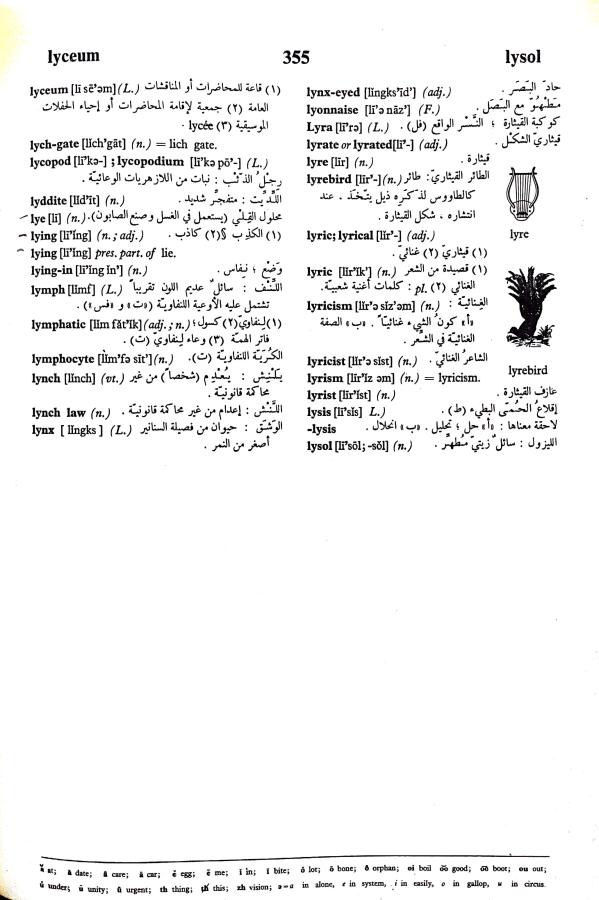 lyceum
355
lysol
lyceum [lī sē'əm] (L.) (١) قاعة للمحاضرات أو المناقشات
العامة (٢) جمعية لإقامة المحاضرات أو إحياء الحفلات
الموسيقية (٣) lycée .
lych-gate [lĭch'gāt] (n.) = lich gate.
lycopod [lī'kə-] ; lycopodium [lī'kə pō'-] (L.)
رجلُ الذئب : نبات من اللازهريات الوعائيّة .
lyddite [lĭd'īt] (n.) اللّدّيت : متفجّر شديد .
lye [lī] (n.) محلول القِلْي (يستعمل في الغسل وصنع الصابون).
lying [lī'ĭng] (n. ; adj.) (١) الكذِب §(٢) كاذب .
lying [lī'ĭng] pres. part. of lie.
lying-in [lī'ĭng ĭn'] (n.) وَضْع ؛ نِفاس .
lymph [lĭmf] (L.) اللَّنْف : سائلٌ عديم اللون تقريباً
تشتمل عليه الأوعية اللنفاويّة («ت» و «فس») .
lymphatic [lĭm făt'ĭk] (adj. ; n.) (١) لِنفاويّ (٢) كسول ؛
فاتر الهمّة (٣) وعاء لِنفاويّ (ت) .
lymphocyte [lĭm'fə sīt'] (n.) الكُرَيّة اللنفاويّة (ت).
lynch [lĭnch] (vt.) يَلْنِش : يُعْدِم (شخصاً) من غير
محاكمة قانونيّة .
lynch law (n.) اللَّنْش : إعدام من غير محاكمة قانونيّة .
lynx [ lĭngks ] (L.) الوَشَق : حيوان من فصيلة السنانير
أصغر من النمر .
lynx-eyed [lĭngks'īd'] (adj.) حادّ البَصَر .
lyonnaise [lī'ə nāz'] (F.) مَطْهُوّ مع البَصَل .
Lyra [lī'rə] (L.) كوكبة القيثارة ؛ النَّسْر الواقع (فل) .
lyrate or lyrated [lī'-] (adj.) قيثاريّ الشكْل .
lyre [līr] (n.) قيثارة .
lyrebird [līr'-] (n.) الطائر القيثاريّ: طائر
كالطاووس لذكَره ذيل يتّخذ . عند
انتشاره ، شكل القيثارة .
lyre
lyric; lyrical [lĭr'-] (adj.)
(١) قيثاريّ (٢) غنائيّ .
lyric [lĭr'ĭk'] (n.) (١) قصيدة من الشعر
الغنائي (٢) pl. : كلمات أغنية شعبيّة.
lyricism [lĭr'ə sĭz'əm] (n.) الغِنائيّة :
«أ» كونُ الشيء غنائيّاً . «ب» الصفة
الغنائيّة في الشّعر .
lyricist [lĭr'ə sĭst] (n.) الشاعرُ الغنائيّ .
lyrebird
lyrism [lĭr'ĭz əm] (n.) = lyricism.
lyrist [līr'ĭst] (n.) عازف القيثارة .
lysis [lī'sĭs] L.) إقلاعُ الحُمّى البطيء (ط) .
-lysis لاحقة معناها : «أ» حل ؛ تحليل . «ب» انحلال .
lysol [lī'sōl; -sŏl] (n.) الليزول : سائلٌ زيتيّ مُطهِّر .
ă at; ā date; â care; ä car; ĕ egg; ē me; ĭ in; ī bite; ŏ lot; ō bone; ô orphan; oi boil ŏŏ good; ōō boot; ou out;
ŭ under; ū unity; û urgent; th thing; th this; zh vision; ə=a in alone, e in system, i in easily, o in gallop, u in circus.